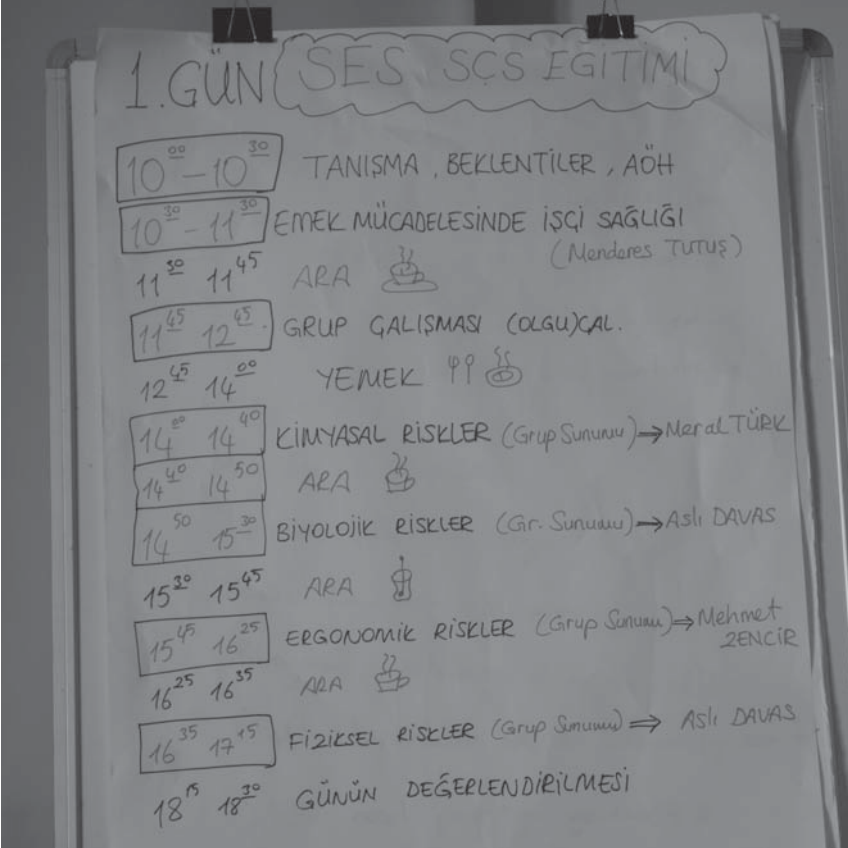 1.GÜN SES SÇS EĞİTİMİ
10⁰⁰ – 10³⁰ TANIŞMA, BEKLENTİLER, AÖH
10³⁰ – 11³⁰ EMEK MÜCADELESİNDE İŞÇİ SAĞLIĞI
(Menderes TUTUŞ)
11³⁰ 11⁴⁵ ARA
11⁴⁵ 12⁴⁵ GRUP ÇALIŞMASI (OLGU)ÇAL.
12⁴⁵ 14⁰⁰ YEMEK
14⁰⁰ 14⁴⁰ KİMYASAL RİSKLER (Grup Sunumu) ⇒ Meral TÜRK
14⁴⁰ 14⁵⁰ ARA
14⁵⁰ 15³⁰ BİYOLOJİK RİSKLER (Gr. Sunumu) ⇒ Aslı DAVAS
15³⁰ 15⁴⁵ ARA
15⁴⁵ 16²⁵ ERGONOMİK RİSKLER (Grup Sunumu) ⇒ Mehmet
ZENCİR
16²⁵ 16³⁵ ARA
16³⁵ 17¹⁵ FİZİKSEL RİSKLER (Grup Sunumu) ⇒ Aslı DAVAS
18¹⁵ 18³⁰ GÜNÜN DEĞERLENDİRİLMESİ